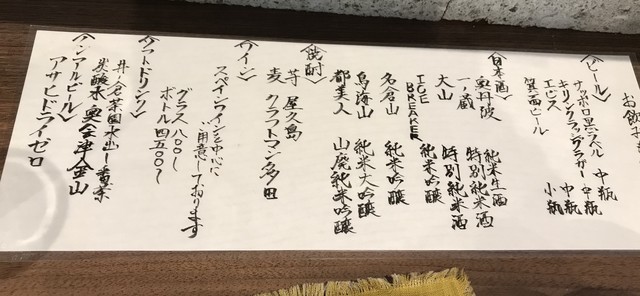 お飲
〈ビール〉
サッポロ黒ラベル 中瓶
キリンラガー 中瓶
ヱビス 小瓶
箕面ビール
〈日本酒〉
奥丹波 純米生酒
一ノ蔵 特別純米酒
大山 特別純米酒
ICE BREAKER 純米吟醸
名倉山 純米吟醸
鳥海山 純米大吟醸
都美人 山廃純米吟醸
〈焼酎〉
芋 屋久島
麦 クラフトマン多田
〈ワイン〉
スペインワインを中心に
ご用意しております
グラス 八〇〇〜
ボトル 四五〇〇〜
〈ソフトドリンク〉
井ノ倉茶園水出し番茶
炭酸水 奥会津金山
〈ノンアルビール〉
アサヒドライゼロ